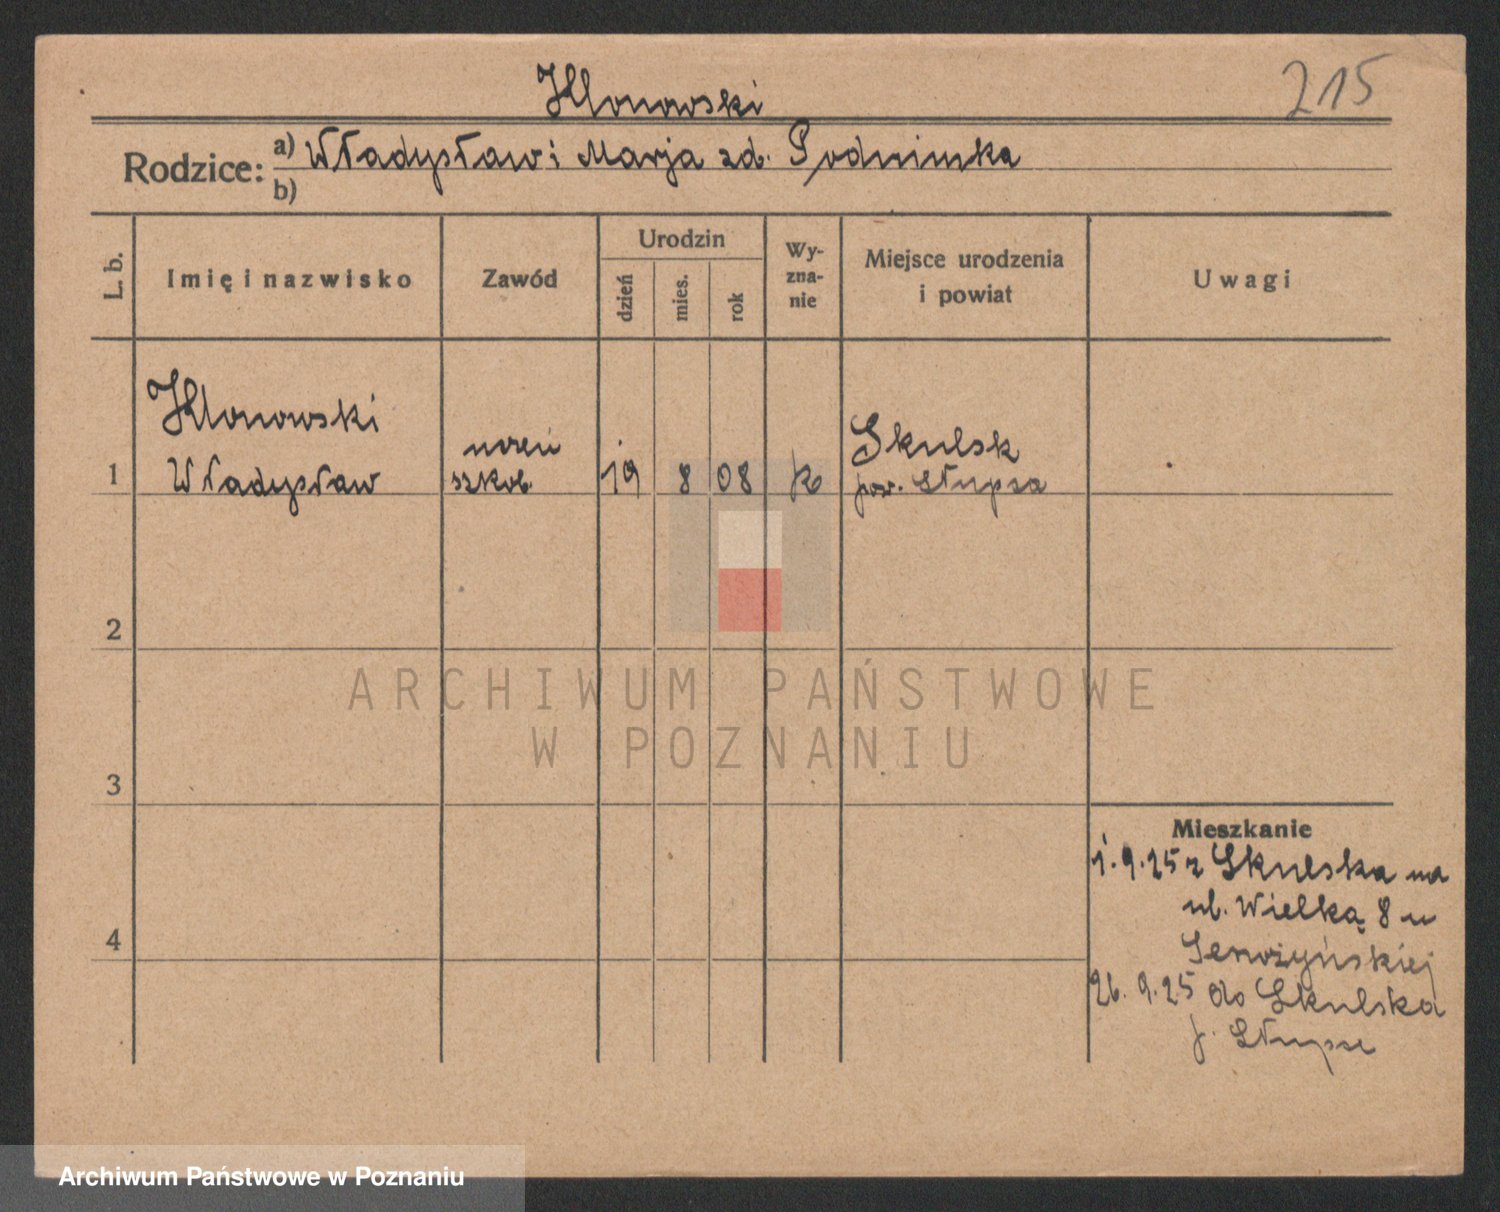 Klonowski
215
Rodzice: a) Władysław i Marja zd. Podnimka
b)
L. b.
Imię i nazwisko
Zawód
Urodzin
dzień
mies.
rok
Wy-
zna-
nie
Miejsce urodzenia
i powiat
Uwagi
Klonowski
Władysław
uczeń
szkol.
1
19
8
08
k
Skulsk
pow. Słupca
2
3
4
Mieszkanie
1.9.25 z Skulska na
ul. Wielką 8 u
26.9.25 do Skulska
p. Słupca
ARCHIWUM PAŃSTWOWE
W POZNANIU
Archiwum Państwowe w Poznaniu